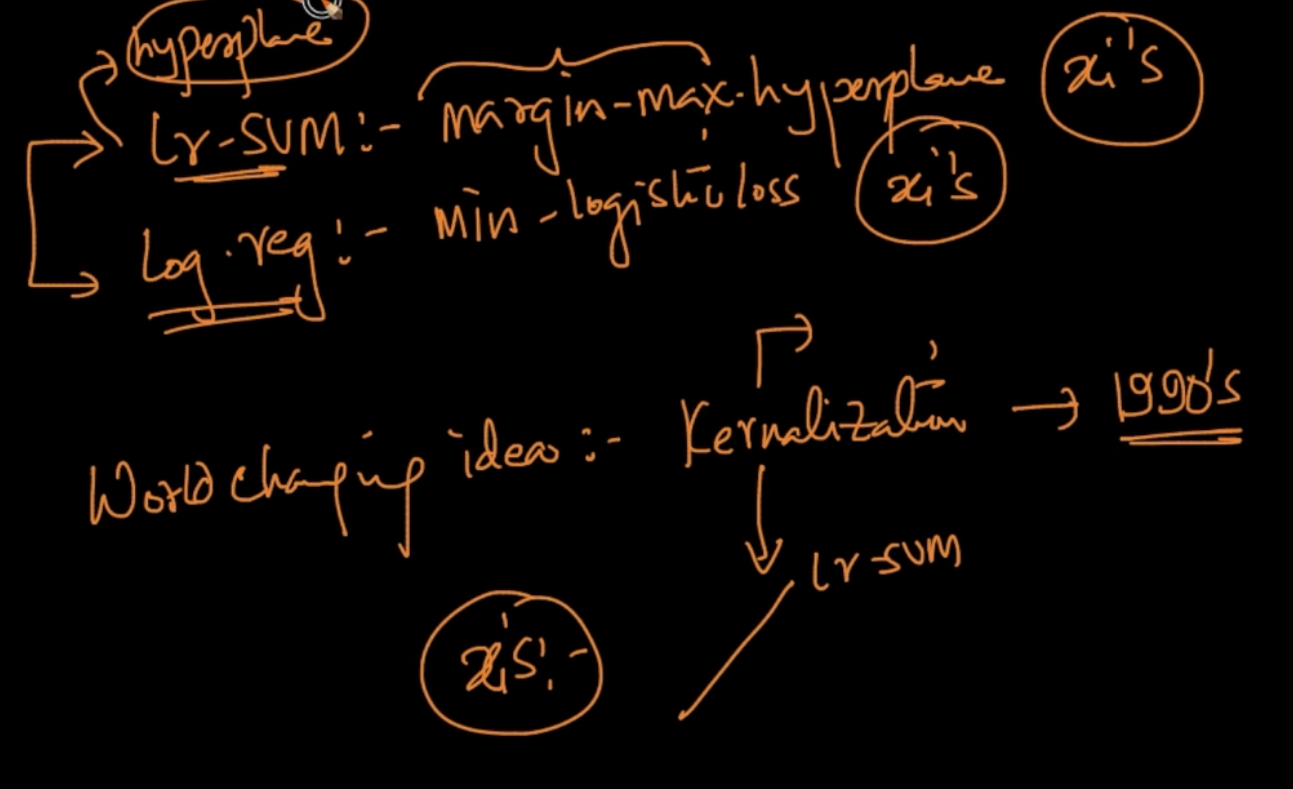 hyperplane
Lr-SVM:- margin-max-hyperplane xi's
Log.reg:- Min-logistic loss xi's
World changing ideas:- Kernalization → 1990's
lr-SVM
xi's:-